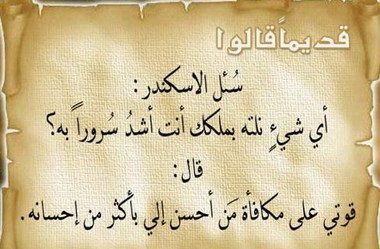 قديماً قالوا
سُئل الاسكندر:
أي شيءٍ نلته بملكك أنت أشدُ سُروراً به؟
قال:
قوتي على مكافأة مَن أحسن إلي بأكثر من إحسانه.